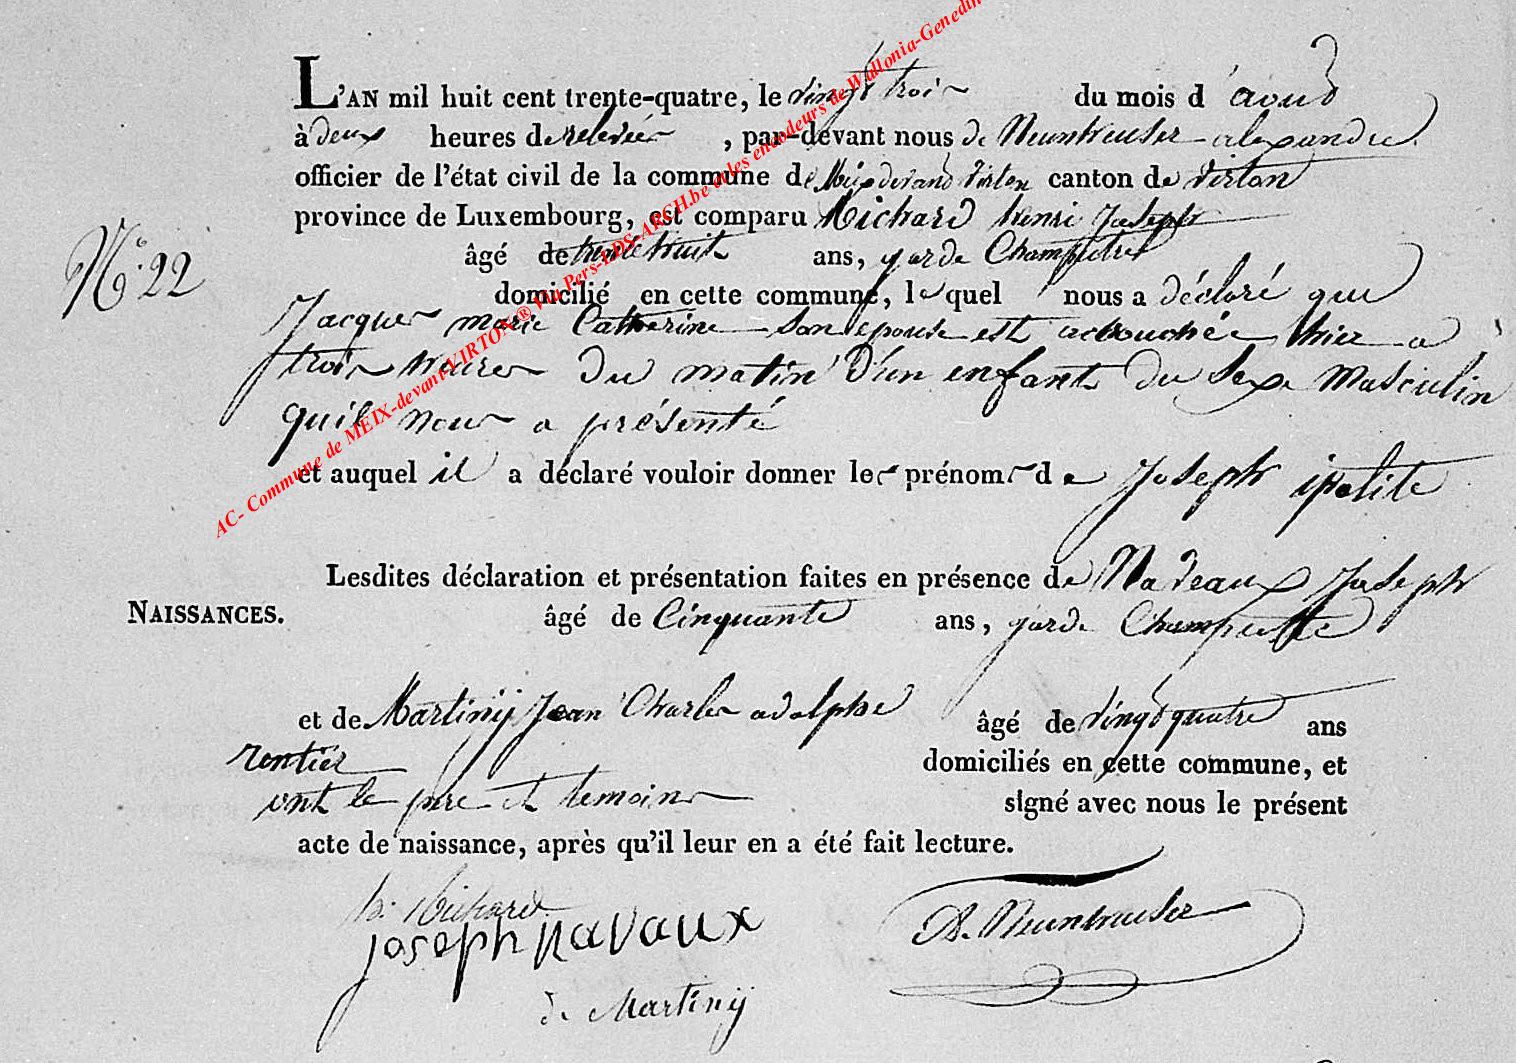 L'AN mil huit cent trente-quatre, le vingt trois du mois d'aoud
à deux heures de relevée, par-devant nous de Neuntreuser alexandre
officier de l'état civil de la commune de Meix devant Virton canton de Virton
province de Luxembourg, est comparu Richard henri Joseph
âgé de trente huit ans, garde Champetre
N° 22
domicilié en cette commune, lequel nous a déclaré que
Jacques marie Catherine son epouse est accouchée hier a
trois heures du matin d'un enfant du Sexe Masculin
quil nous a présenté
et auquel il a déclaré vouloir donner les prénoms de Joseph ipolite
Lesdites déclaration et présentation faites en présence de Navaux Joseph
NAISSANCES.
âgé de Cinquante ans, garde Champettre
et de Martiny Jean Charles adolphe âgé de vingt quatre ans
rentier domiciliés en cette commune, et
ont le pere et temoins signé avec nous le présent
acte de naissance, après qu'il leur en a été fait lecture.
h. Richard
joseph navaux
A. Neuntreuser
de Martiny
AC- Commune de MEIX-devant-VIRTON ® Via Pers-LDS-ARCH.be et les encodeurs de Wallonia-Genedin